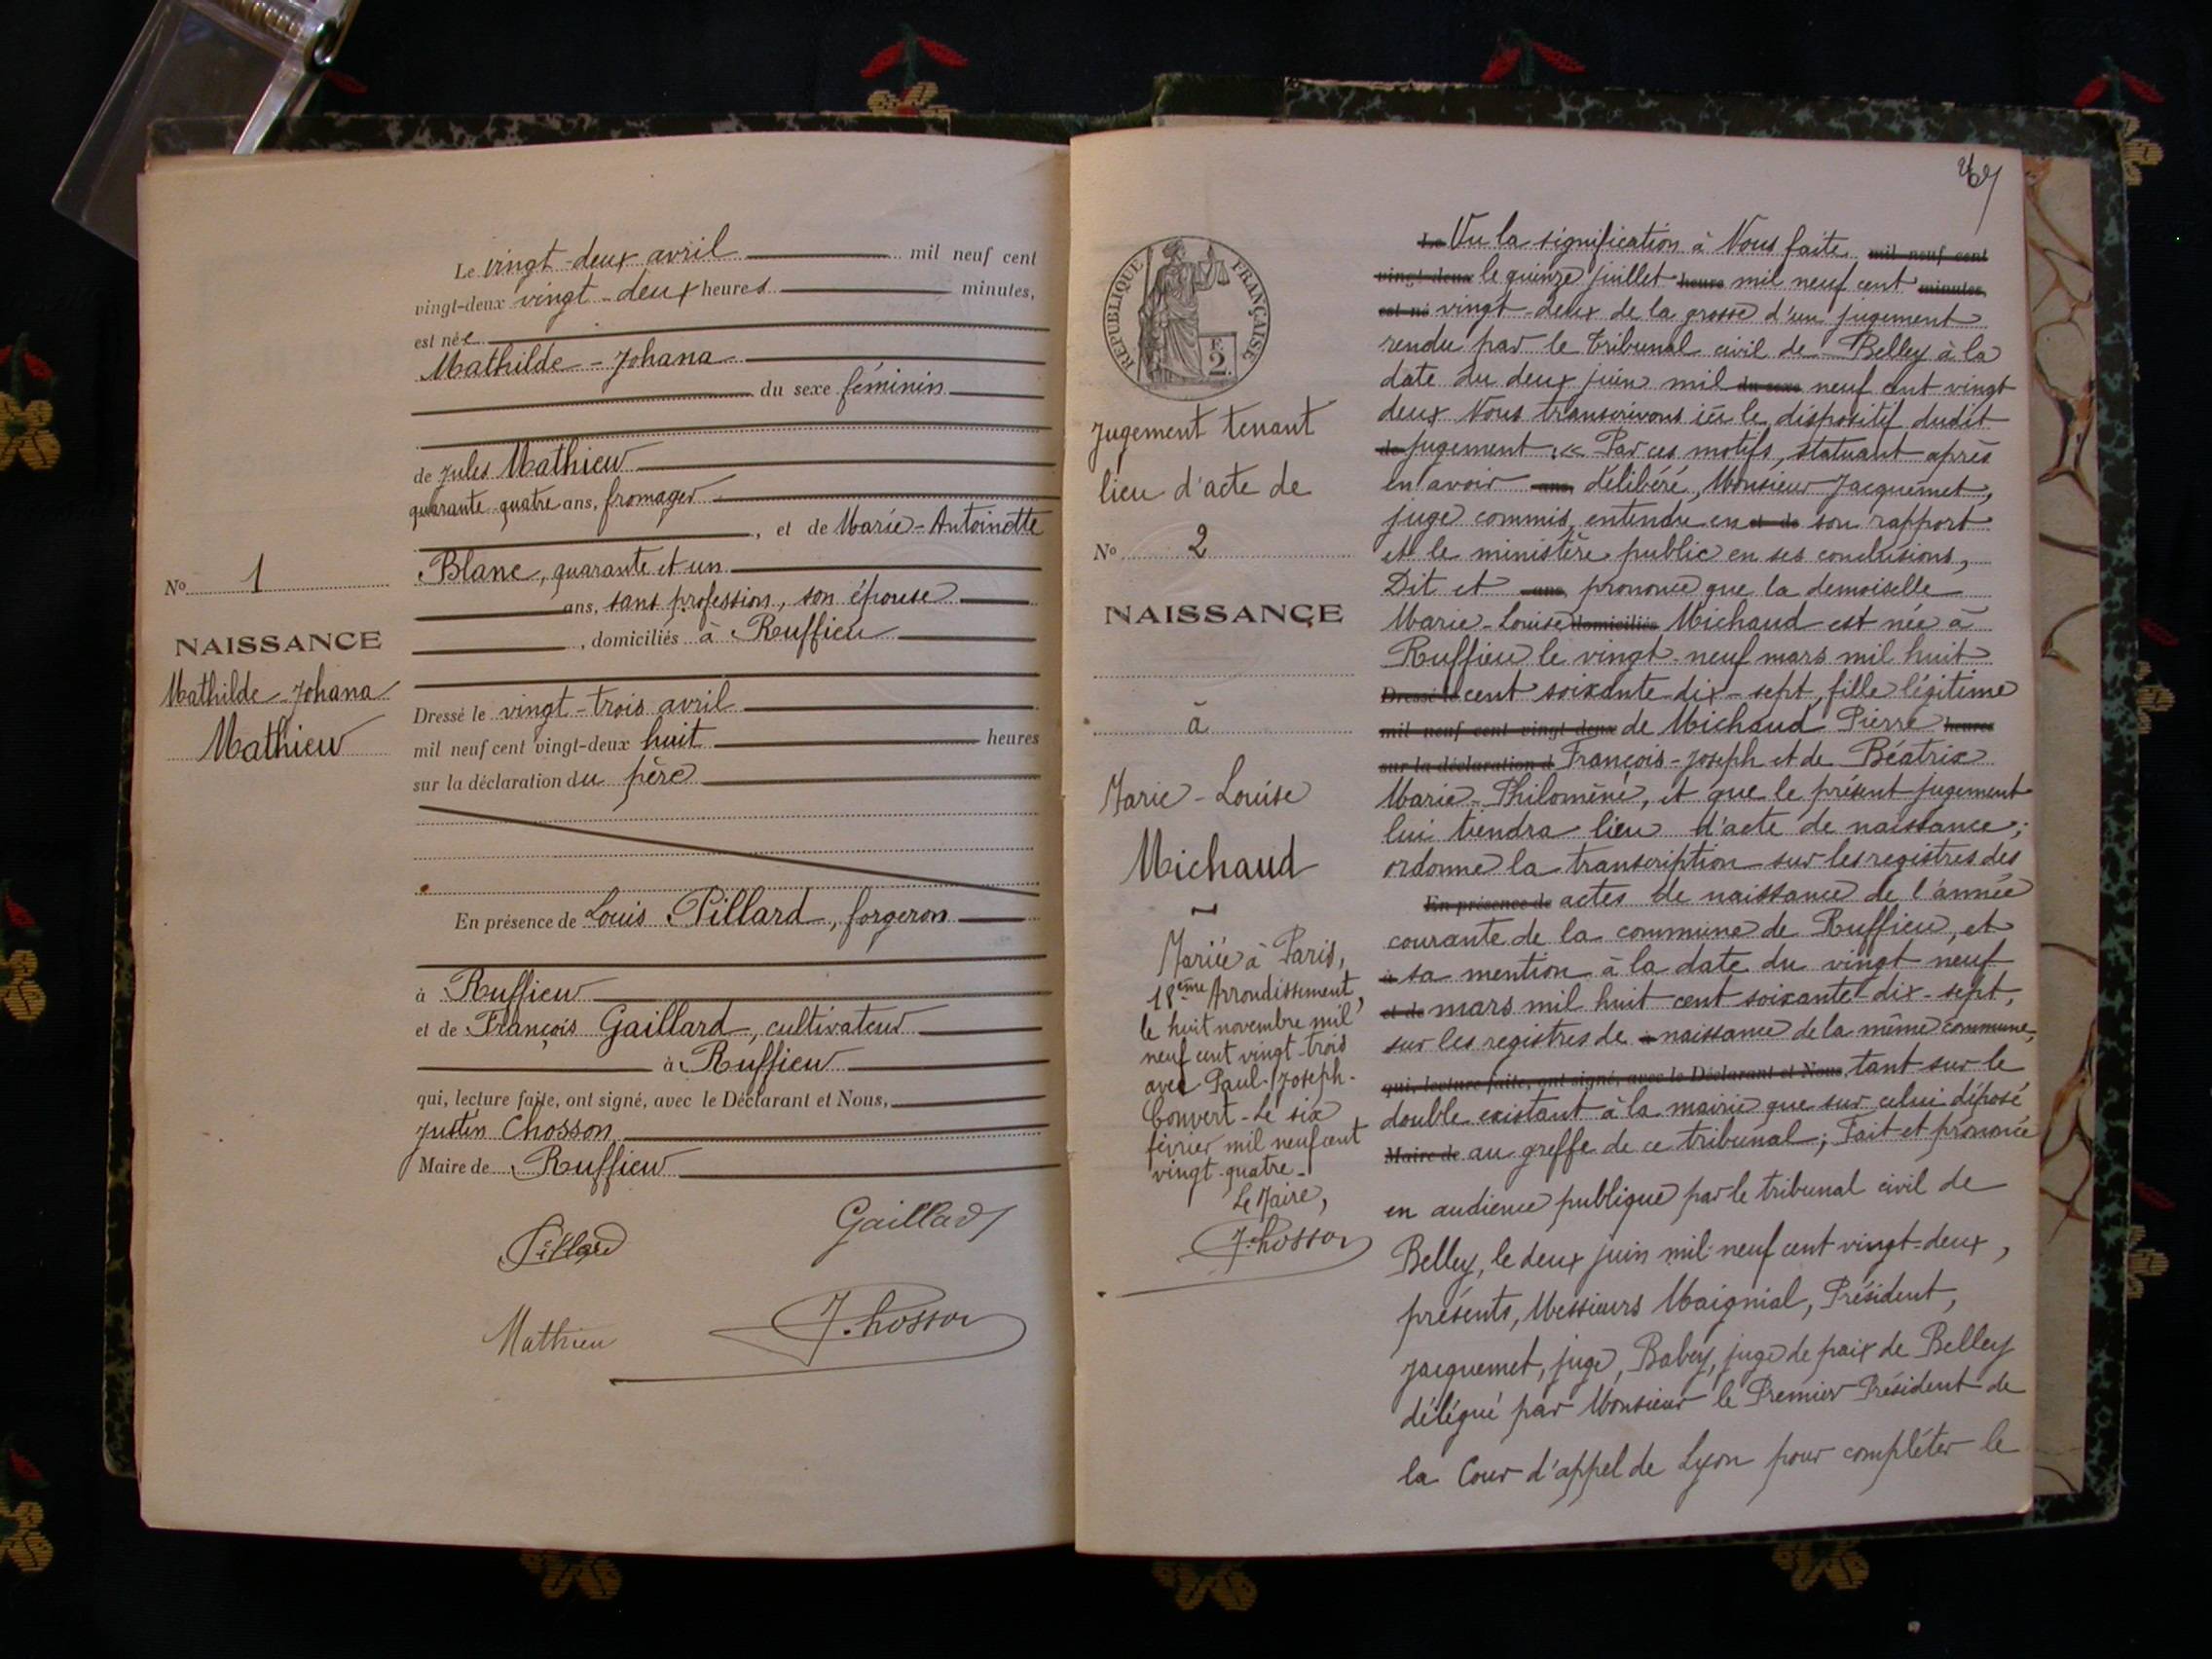 Le vingt-deux avril mil neuf cent
vingt-deux vingt-deux heures minutes,
est née
Mathilde-Johana
du sexe féminin
de Jules Mathieu
quarante-quatre ans, fromager
, et de Marie-Antoinette
Blanc, quarante et un
ans, sans profession, son épouse
, domiciliés à Ruffieu
Dressé le vingt-trois avril
mil neuf cent vingt-deux huit heures
sur la déclaration du père
En présence de Louis Pillard, forgeron
à Ruffieu
et de François Gaillard, cultivateur
à Ruffieu
qui, lecture faite, ont signé, avec le Déclarant et Nous,
Justin Chosson
Maire de Ruffieu
Pillard
Gaillard
Mathieu
J. Chosson
No 1
NAISSANCE
Mathilde-Johana
Mathieu
RÉPUBLIQUE FRANÇAISE
2 F
Jugement tenant
lieu d'acte de
No 2
NAISSANCE
à
Marie-Louise
Michaud
Mariée à Paris,
18ème Arrondissement,
le huit novembre mil
neuf cent vingt-trois
avec Paul-Joseph-
Convert-Le six
février mil neuf cent
vingt-quatre-
Le Maire,
J. Chosson
Le Vu la signification à Nous faite mil neuf cent
vingt-deux le quinze juillet heure mil neuf cent minutes,
est né vingt-deux de la grosse d'un jugement
rendu par le Tribunal civil de Belley à la
date du deux juin mil du sexe neuf cent vingt
deux Nous transcrivons ici le dispositif dudit
de jugement : « Par ces motifs, statuant après
en avoir ans, délibéré, Monsieur Jacquemet,
juge commis, entendu en et de son rapport
et le ministère public en ses conclusions,
Dit et ans, prononce que la demoiselle
Marie-Louise domiciliés Michaud est née à
Ruffieu le vingt-neuf mars mil huit
Dressé le cent soixante dix-sept, fille légitime
mil neuf cent vingt-deux de Michaud Pierre heures
sur la déclaration d François-Joseph et de Béatrix
Marie-Philomène, et que le présent jugement
lui tiendra lieu d'acte de naissance;
ordonne la transcription sur les registres des
En présence de actes de naissance de l'année
courante de la commune de Ruffieu, et
à sa mention à la date du vingt neuf
et de mars mil huit cent soixante dix-sept,
sur les registres de à naissance de la même commune,
qui, lecture faite, ont signé, avec le Déclarant et Nous, tant sur le
double existant à la mairie que sur celui déposé
Maire de au greffe de ce tribunal; Fait et prononcé
en audience publique par le tribunal civil de
Belley, le deux juin mil neuf cent vingt-deux,
présents, Messieurs Maignial, Président,
Jacquemet, juge, Babey, juge de paix de Belley
délégué par Monsieur le Premier Président de
la Cour d'appel de Lyon pour compléter le